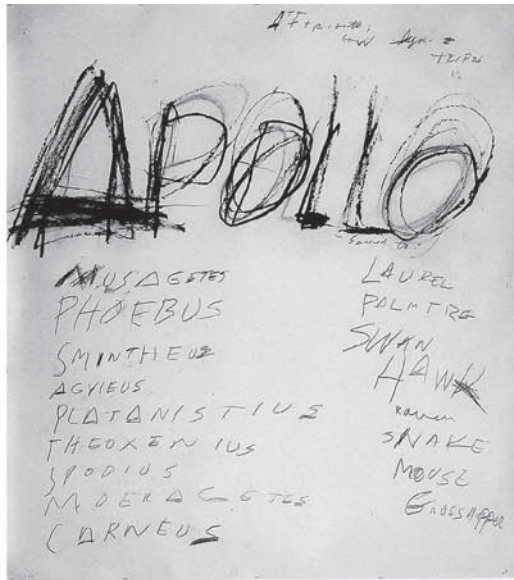 Attributes:
bow lyre
TRIPOD
APOLLO
MUSAGETES
PHOEBUS
SMINTHEUS
AGVIEUS
PLATANISTIUS
THEOXENIUS
SPODIUS
MOERAGETES
CARNEUS
Sacred to:
LAUREL
PALM TREE
SWAN
HAWK
raven
SNAKE
MOUSE
GRASSHOPPER